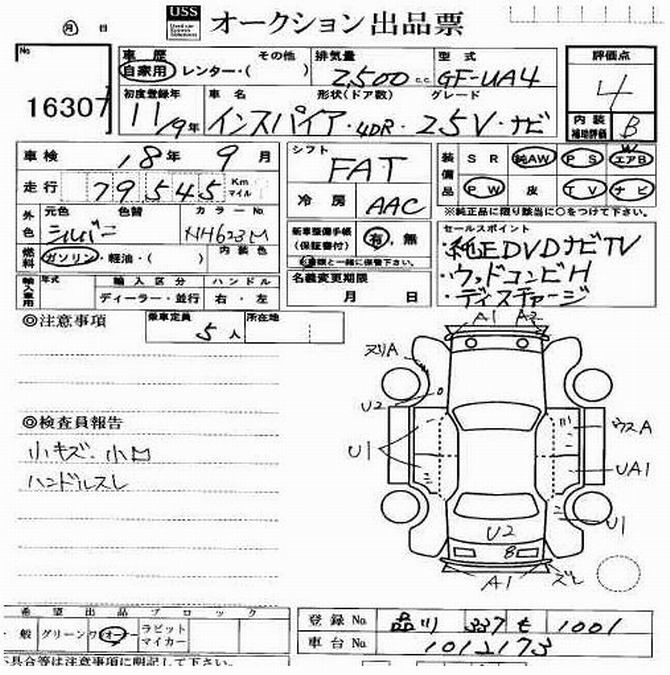 月 日
USS
Used car System Solutions
オークション出品票
No
16307
車歴 その他 排気量 型式 評価点
自家用 レンター・( ) 2,500 c.c. GF-UA4 4
初度登録年 車名 形状(ドア数) グレード 内装 補助評価 B
11/9年 インスパイア・4DR・25V・ナビ
車検 18年 9月
走行 79545 Km マイル
外色 元色 色替 カラーNo.
シルバー NH623M
燃料 ガソリン・軽油・( ) 内装色
輸入車用 年式 輸入区分 ハンドル
ディーラー・並行 右・左
シフト FAT
冷房 AAC
新車整備手帳 (保証書付) 有.無
※書類と一緒に保管下さい。
名義変更期限
月 日
装備品 SR 純AW PS エアB W
PW 皮 TV ナビ
※純正品に限り該当に○をつけて下さい。
セールスポイント
・純正DVDナビTV
・ウッドコンビH
・ディスチャージ
◎注意事項 乗車定員 5人 所在地
A1 A2
ヌリA
U2
U1
ウスA
UA1
U1
U2
B
A1 ズレ
◎検査員報告
小キズ.小凹
ハンドルスレ
希望出品ブロック
般 グリーン ワンオーナー ラビットマイカー
不具合等は注意事項に明記して下さい。
登録No. 品川 337 も 1001
車台No. 1012173